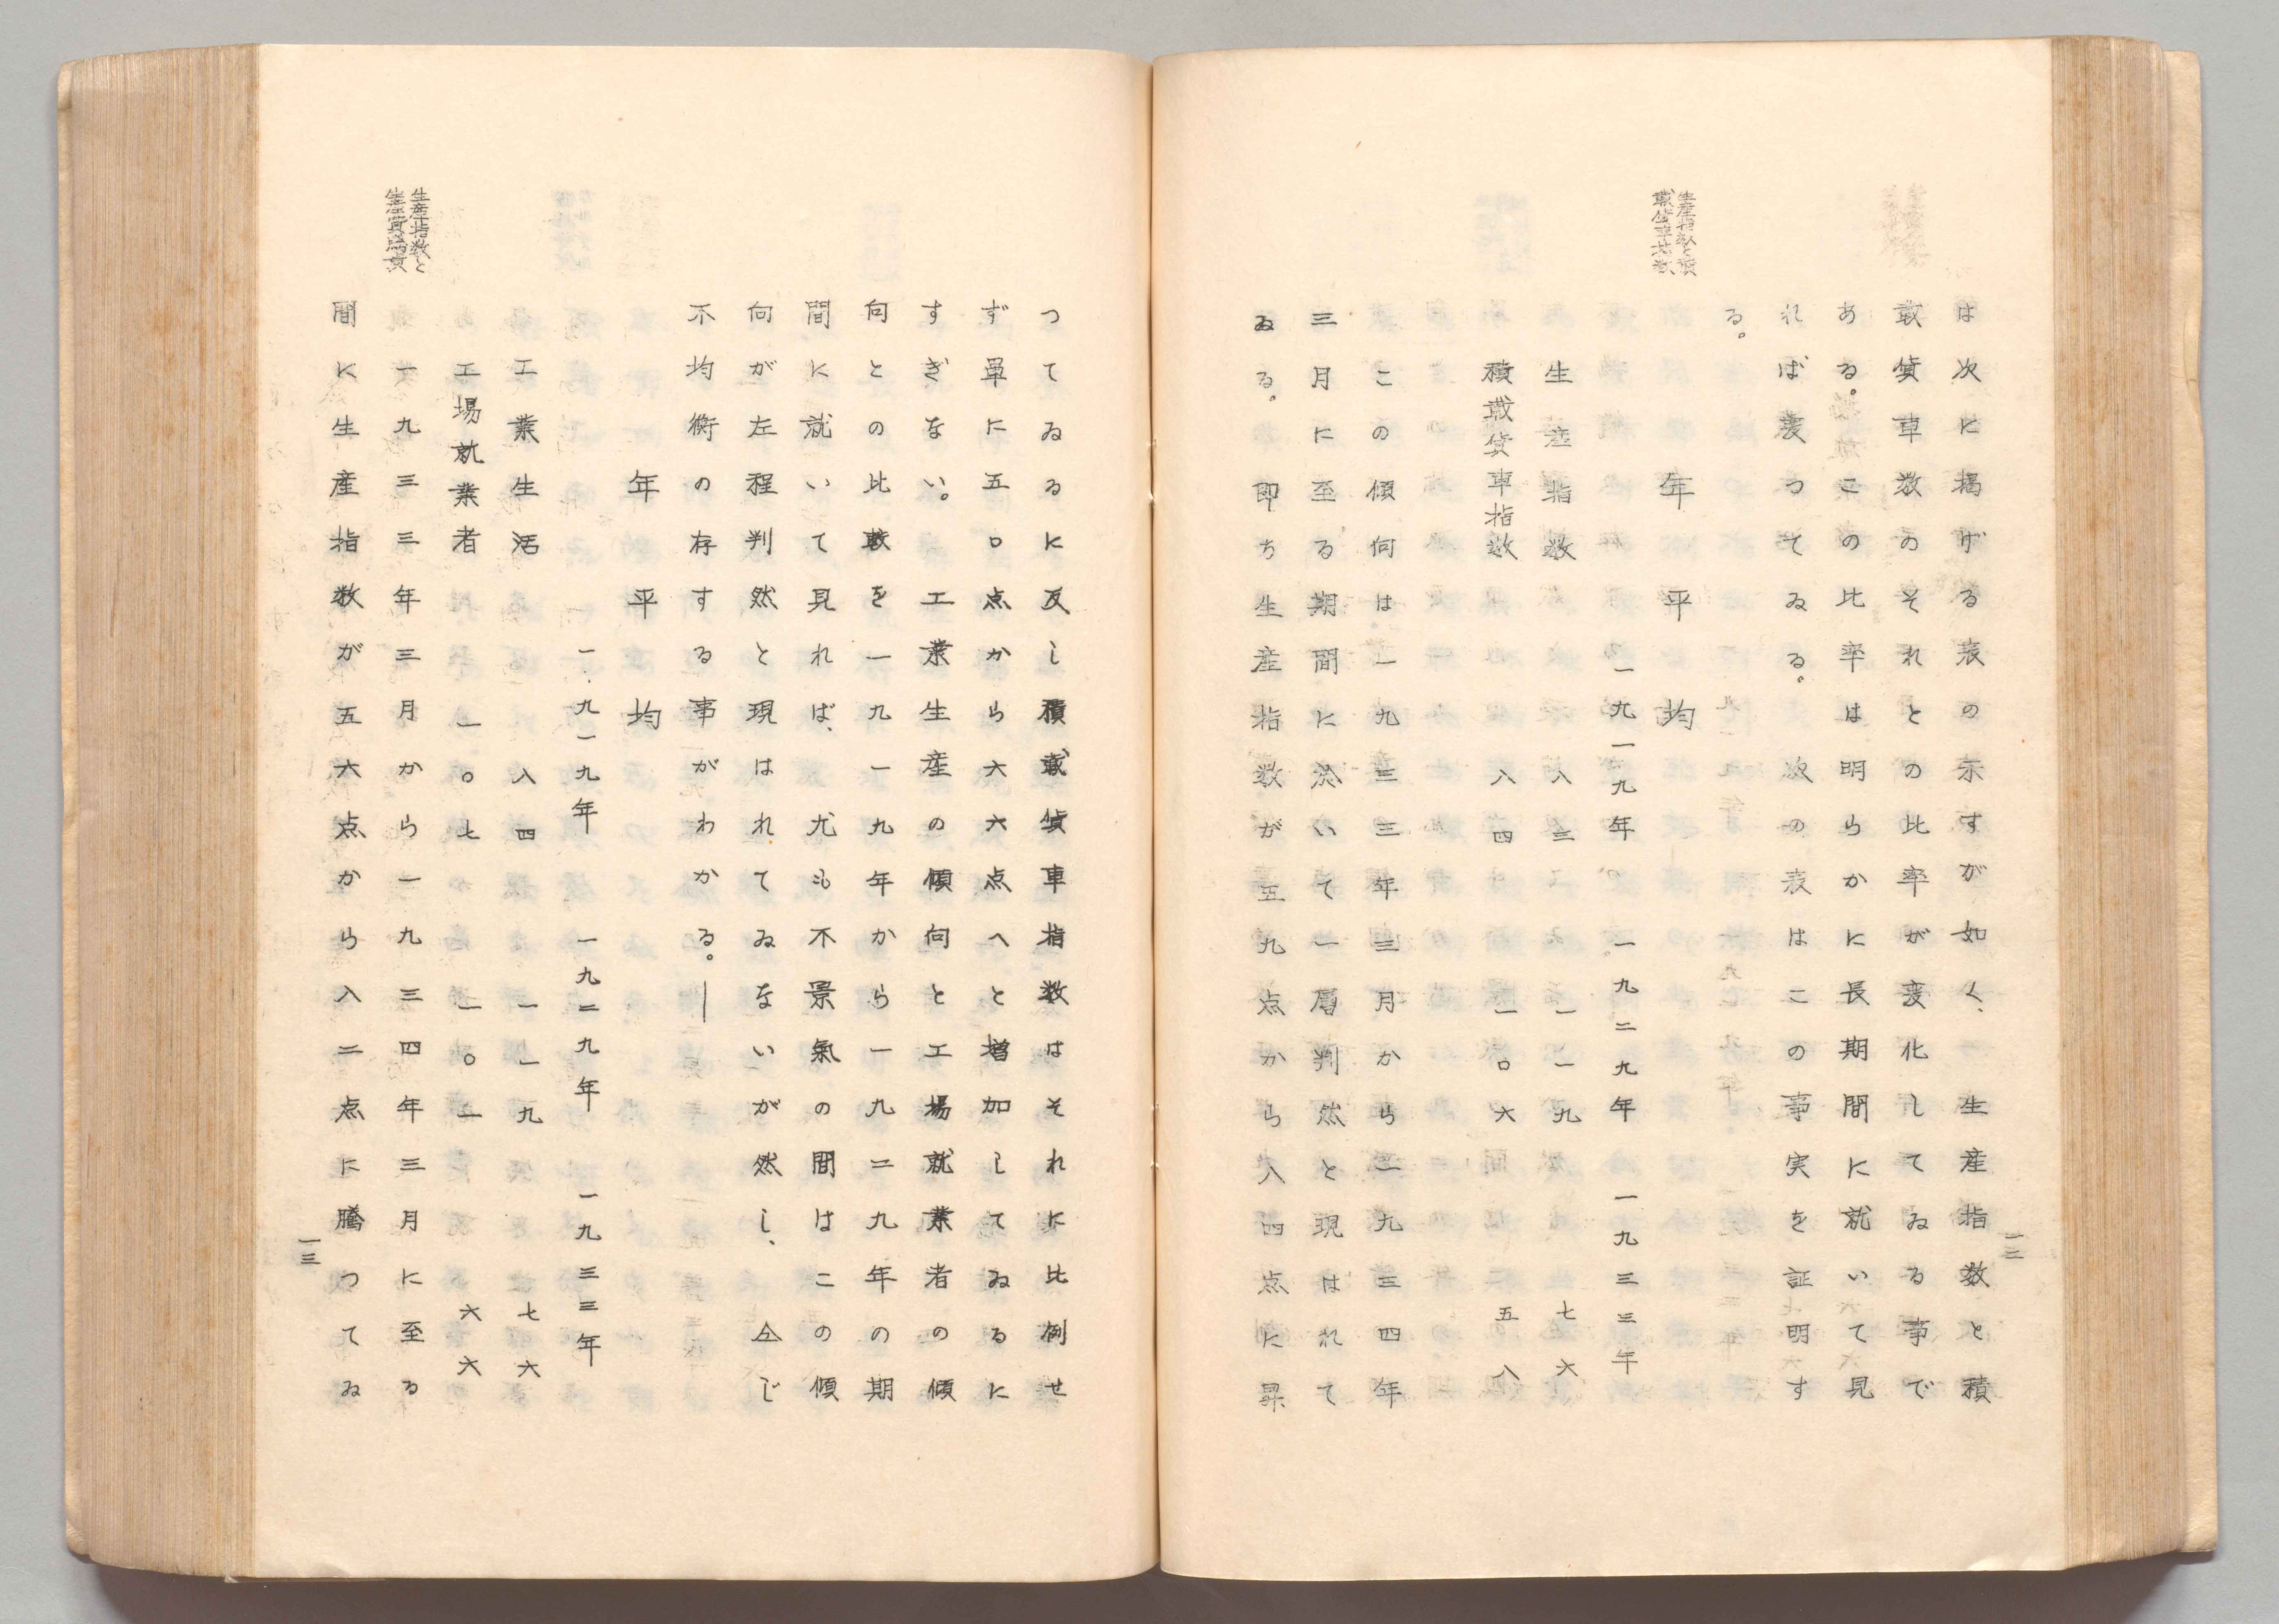 は次に掲げる表の示すが如く、生産指数と積
載貨車数のそれとの比率が変化してゐる事で
ある。この比率は明らかに長期間に就いて見
れば変つてゐる。次の表はこの事実を証明す
る。
生産指数と積
載貨車指数
年平均
一九一九年 一九二九年 一九三三年
生産指数 八三 一一九 七六
積載貨車指数 八四 一〇六 五八
この傾向は一九三三年三月から一九三四年
三月に至る期間に於いて一層判然と現はれて
ゐる。即ち生産指数が五九点から八四点に昇
一二
つてゐるに反し積載貨車指数はそれに比例せ
ず単に五〇点から六六点へと増加してゐるに
すぎない。工業生産の傾向と工場就業者の傾
向との比較を一九一九年から一九二九年の期
間に就いて見れば、尤も不景氣の間はこの傾
向が左程判然と現はれてゐないが然し、仝じ
不均衡の存する事がわかる。―
年平均
一九一九年 一九二九年 一九三三年
工業生活 八四 一一九 七六
工場就業者 一〇七 一〇一 六六
生産指数と
一九三三年三月から一九三四年三月に至る
間に生産指数が五六点から八二点に騰つてゐ
一三